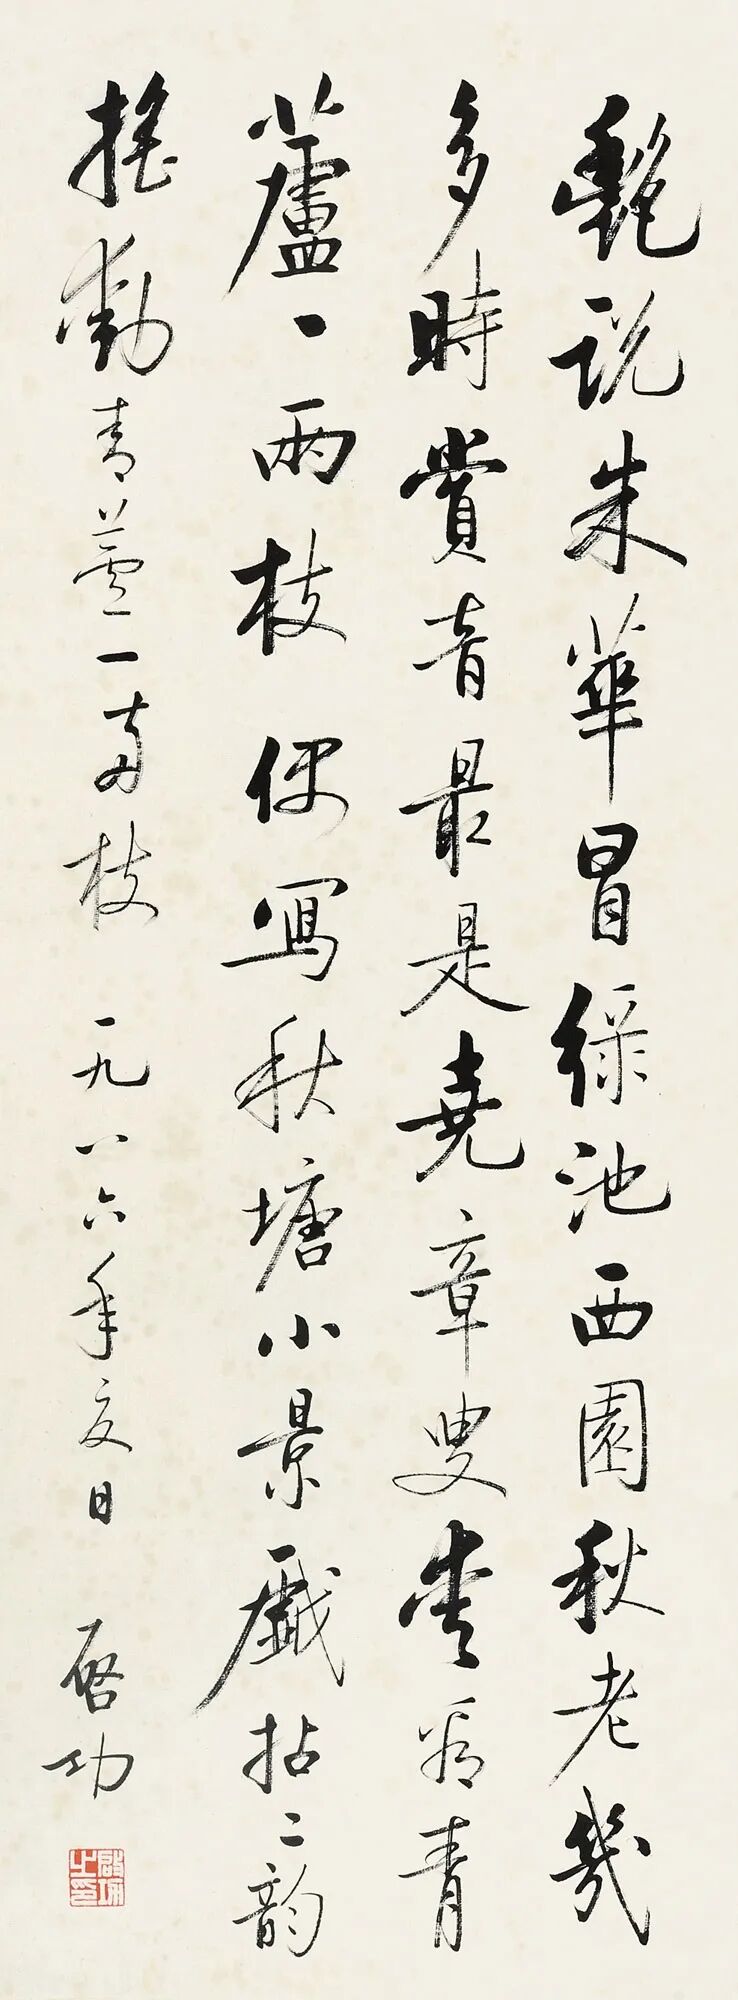 艷說朱華冒綠池西園秋老幾
多時賞音最是堯章叟愛看青
蘆一兩枝 偶寫秋塘小景戲拈二韻
搖動青蘆一兩枝 一九八六年夏日 啓功
啟功之印